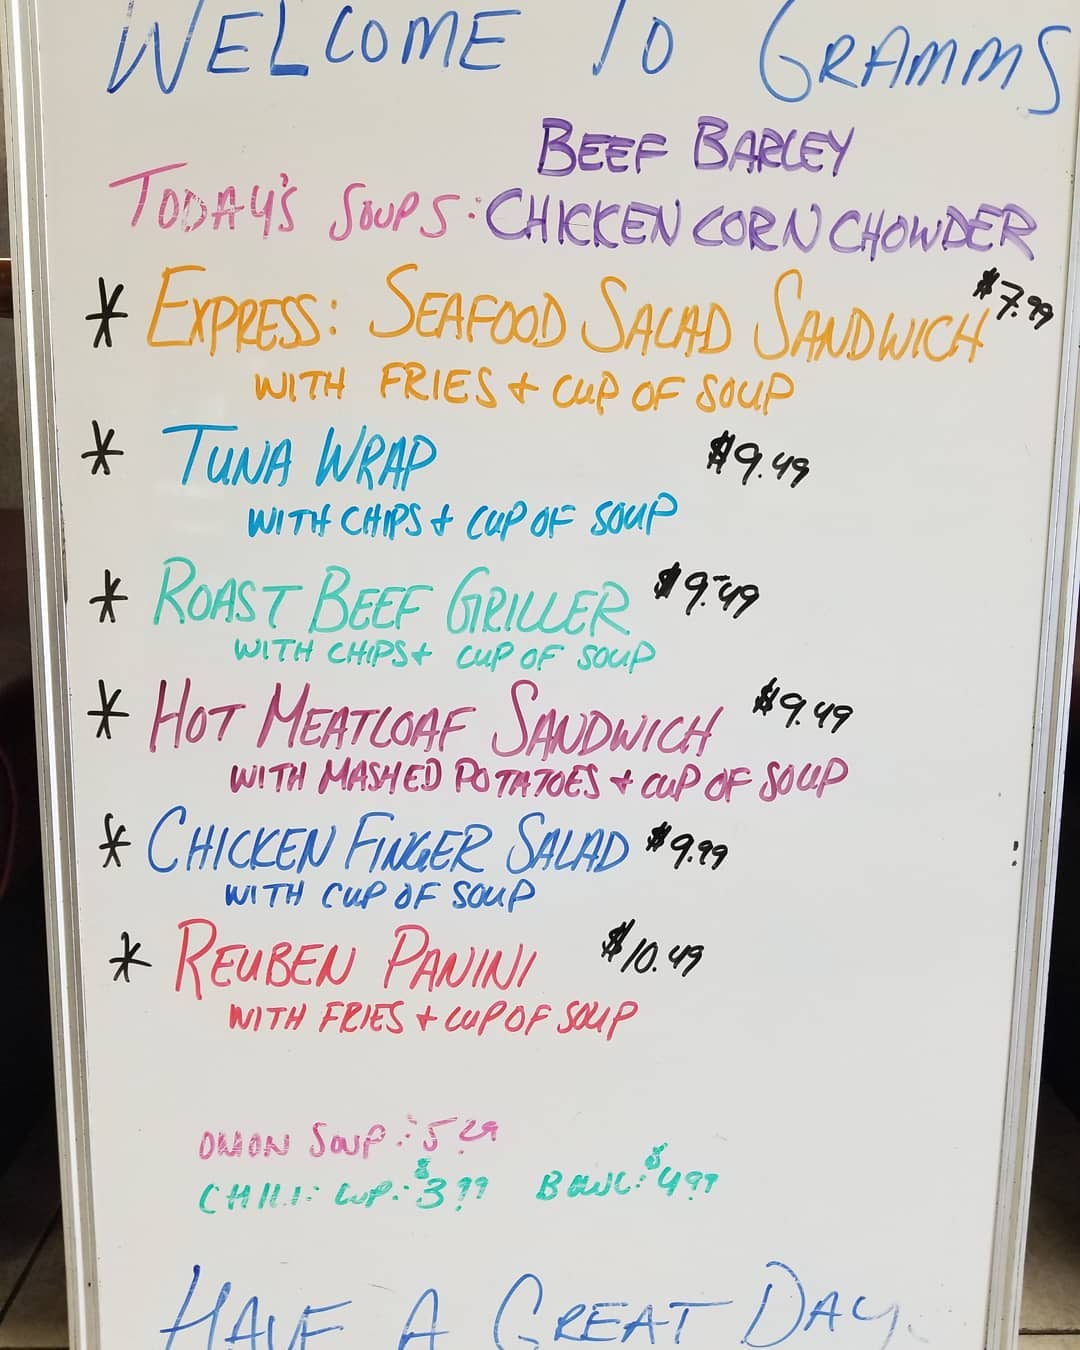 WELCOME TO GRAMMS
BEEF BARLEY
TODAY'S SOUPS: CHICKEN CORN CHOWDER
* EXPRESS: SEAFOOD SALAD SANDWICH $7.99
WITH FRIES + CUP OF SOUP
* TUNA WRAP $9.49
WITH CHIPS + CUP OF SOUP
* ROAST BEEF GRILLER $9.49
WITH CHIPS + CUP OF SOUP
* HOT MEATLOAF SANDWICH $9.49
WITH MASHED POTATOES + CUP OF SOUP
* CHICKEN FINGER SALAD $9.99
WITH CUP OF SOUP
* REUBEN PANINI $10.49
WITH FRIES + CUP OF SOUP
ONION SOUP: 5.29
CHILI: CUP: $3.99 BOWL: $4.99
HAVE A GREAT DAY